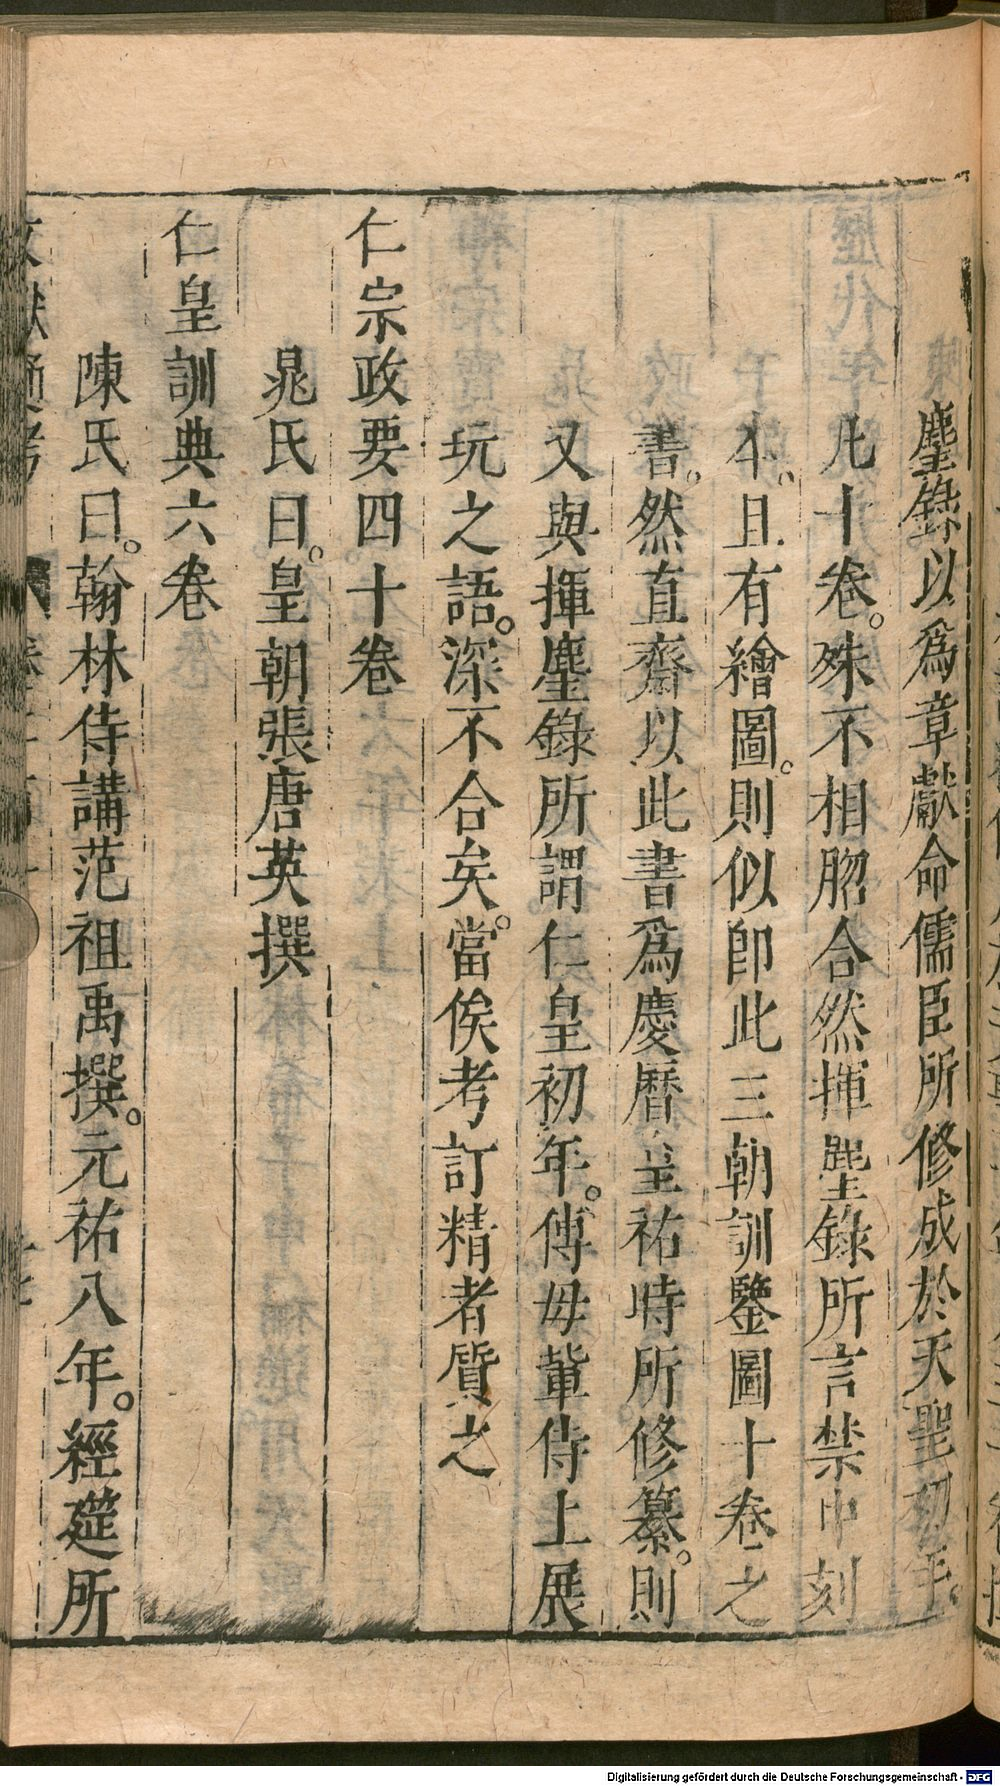 塵錄以爲章獻命儒臣所修成於天聖初年。
凡十卷。殊不相脗合然揮塵錄所言禁中刻
本。且有繪圖。則似卽此三朝訓鑒圖十卷之
書。然直齋以此書爲慶曆皇祐時所修纂。則
又與揮塵錄所謂仁皇初年。傅母輩侍上展
玩之語。深不合矣。當俟考訂精者質之
仁宗政要四十卷
晁氏曰。皇朝張唐英撰
仁皇訓典六卷
陳氏曰。翰林侍講范祖禹撰。元祐八年。經筵所
Digitalisierung gefördert durch die Deutsche Forschungsgemeinschaft - DFG